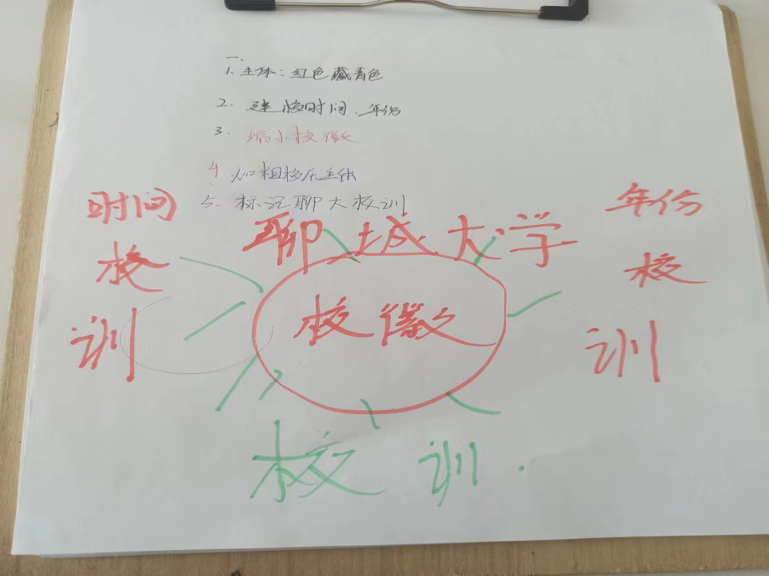 一、
1. 主体：红色藏青色
2. 建校时间、年份
3. 缩小校徽
4. 加粗校名主体
5. 标注聊大校训
时间 聊城大学 年份
校 校徽 校
训 训
校训.